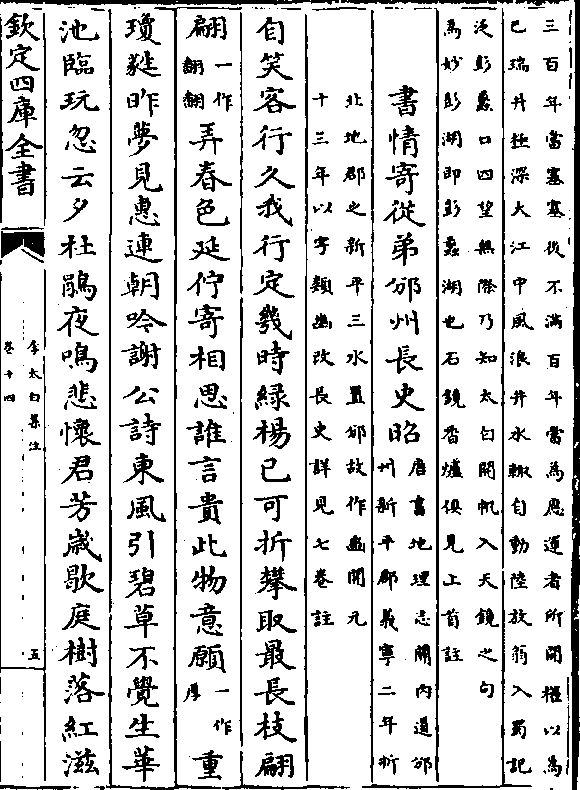 三百年當塞塞後不滿百年當為應運者所開權以為
已瑞井極深大江中風浪井水輒自動陸放翁入蜀記
泛彭蠡口四望無際乃知太白開帆入天鏡之句
為妙彭湖即彭蠡湖也石鏡香爐俱見上首註
書情寄從弟邠州長史昭
唐書地理志關內道邠
州新平郡義寧二年析
北地郡之新平三水置邠故作豳開元
十三年以字類幽改長史詳見七卷註
自笑客行久我行定幾時緑楊已可折攀取最長枝翩
翩一作翻翻弄春色延佇寄相思誰言貴此物意願一作厚重
瓊蕤昨夢見惠連朝吟謝公詩東風引碧草不覺生華
池臨玩忽云夕杜鵑夜鳴悲懷君芳歳歇庭樹落紅滋
欽定四庫全書
李太白集注
卷十四
五